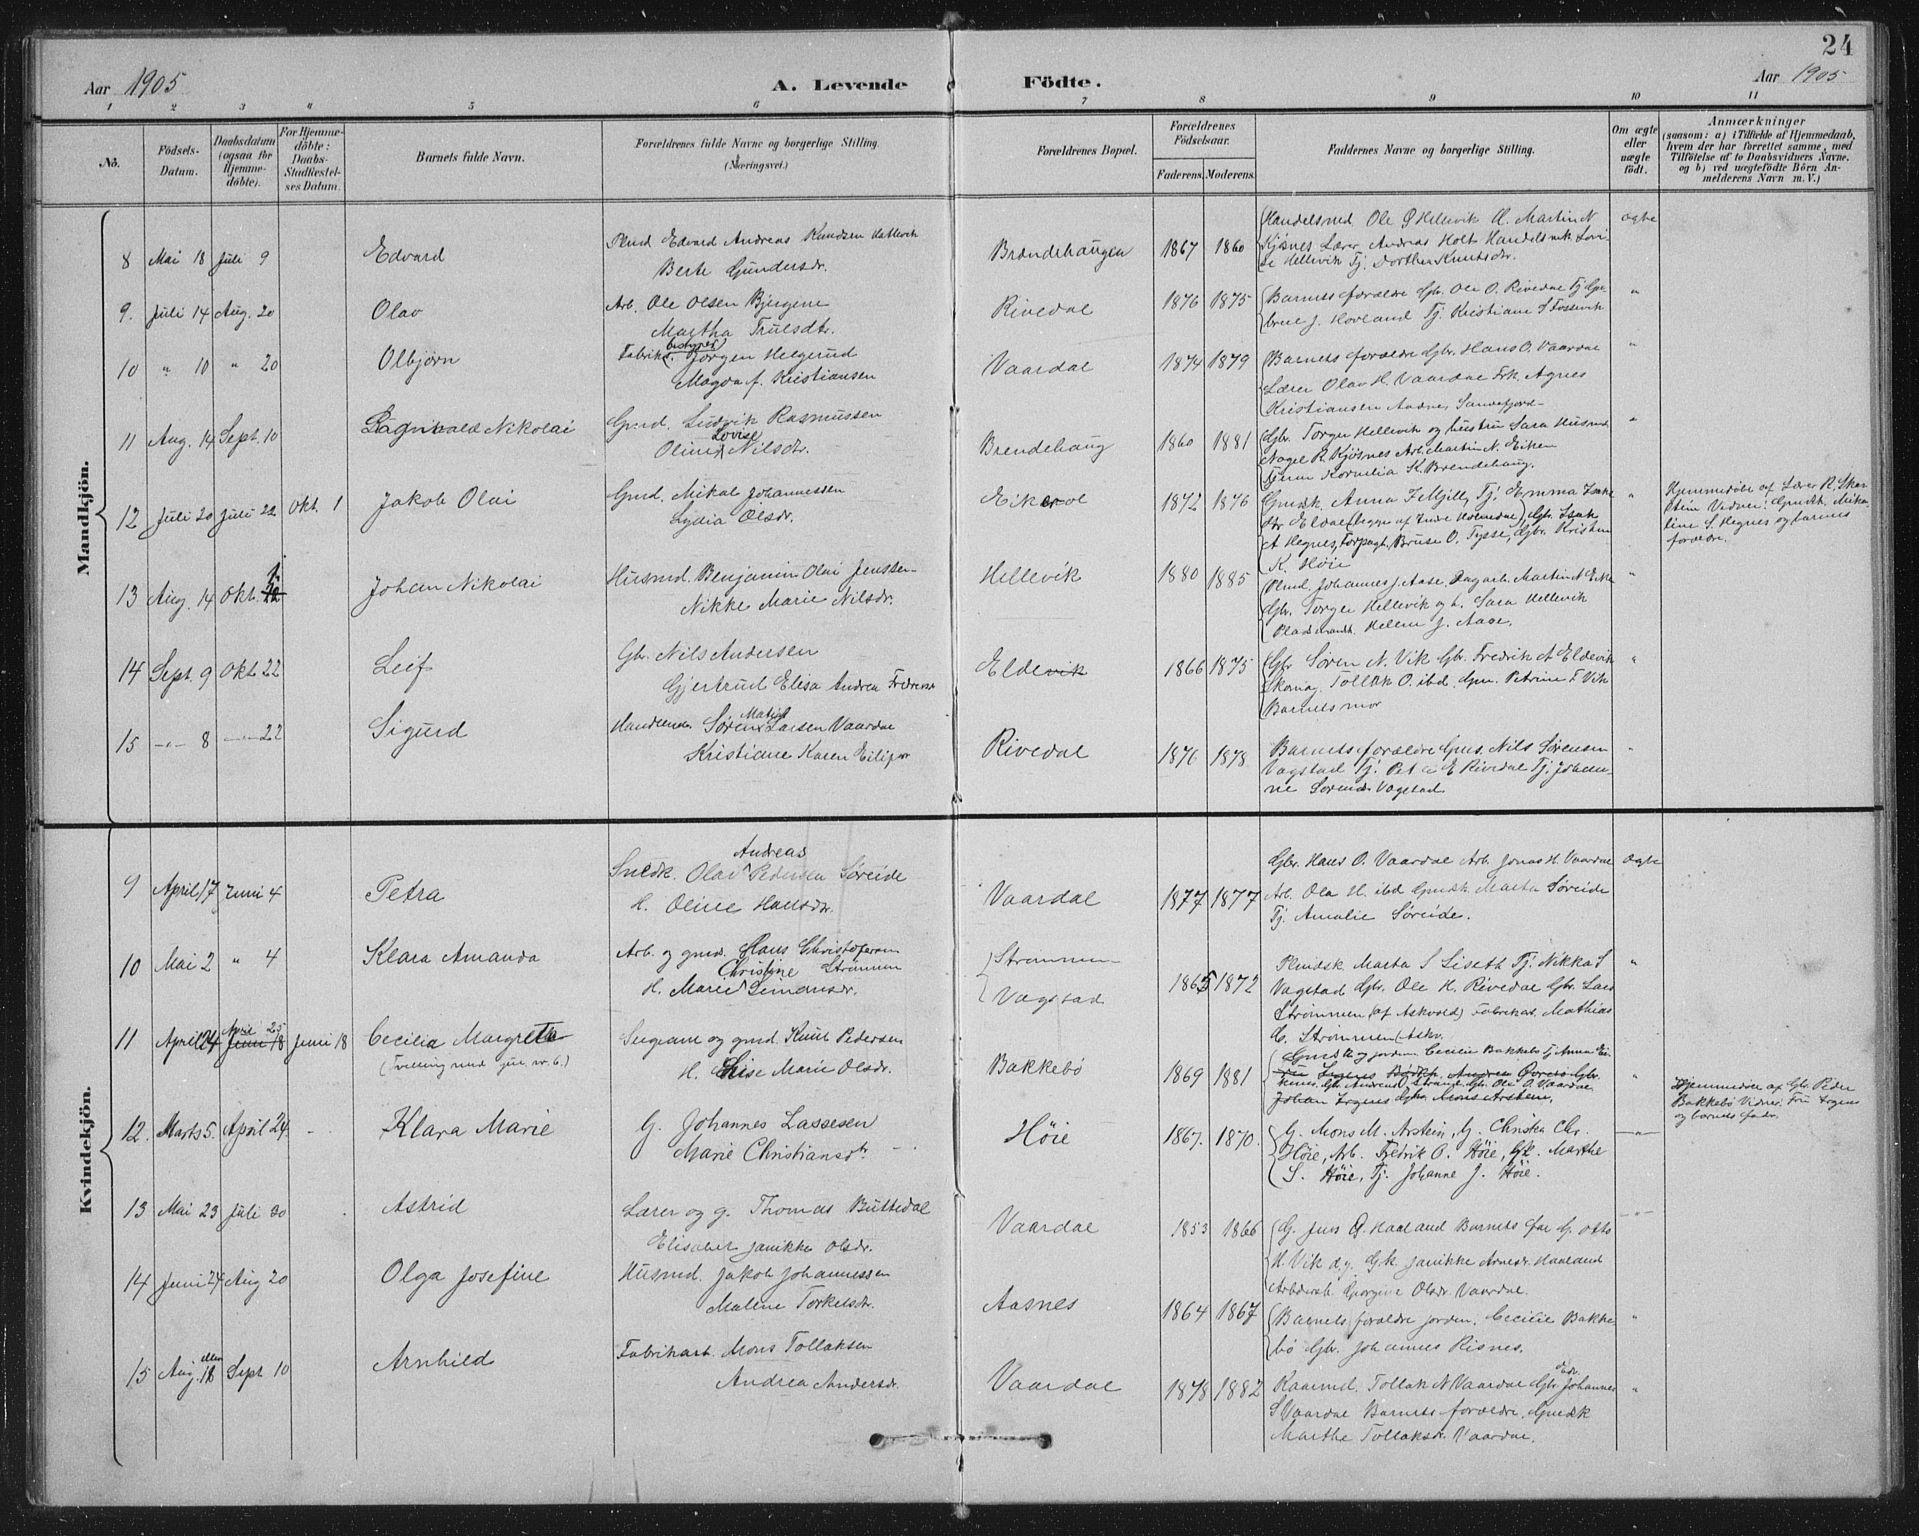 24
Aar 1905
A. Levende Födte.
Aar 1905
1 2 3 4 5 6 7 8 9 10 11
No.
Födsels-
Datum.
Daabsdatum
(ogsaa for
Hjemme-
döbte).
For Hjemme-
döbte:
Daabs-
Stadfæstel-
ses Datum.
Barnets fulde Navn.
Forældrenes fulde Navne og borgerlige Stilling.
(Næringsvei.)
Forældrenes Bopæl.
Forældrenes
Födselsaar.
Faderens. Moderens.
Faddernes Navne og borgerlige Stilling.
Om ægte
eller
uægte
födt.
Anmærkninger
(saasom: a) i Tilfælde af Hjemmedaab,
hvem der har forrettet samme, med
Tilföielse af to Daabsvidners Navne,
og b) ved uægtefödte Börn An-
melderens Navn m. V.)
Mandkjön.
8 Mai 18 Juli 9
Edvard
Plmd Edvard Andreas Knudsen Hellevik
Berte Gundersdr.
Brændehaugen
1867 1860
Handelsmd Ole Ø Hellevik Martin N
Kjøsnes Lærer Andreas Holt Handelsmk Lovi-
se Hellevik Tj. Dorthea Knutsdr.
ægte
9. Juli 14 Aug. 20
Olav
Arb. Ole Olsen Bjergene
Martha Trulsdtr.
Rivedal
1876 1875
Barnets forældre Gbr. Ole O. Rivedal Tj
J. Hovland Tj. Kristiane S Fossevik
"
10 " 10 " 20
Olbjørn
Fabrik bestyrer Jørgen Helgerud
Magda f. Kristiansen
Vaardal
1874 1879
Barnets forældre Gbr. Hans O. Vaardal
Lærer Olav H. Vaardal Frk. Agnes
Kristiansen Aadne, Sandefjord
"
11 Aug. 14 Sept. 10
Ragnvald Nikolai
Gmd. Ludvik Rasmussen
Oline Lovise Nilsdr.
Brendehaug
1860 1881
Gbr. Torger Hellevik og hustru Sara Husmd
Nagel R. Kjøsnes Arb. Martin N. Eiken
Kornelia K. Brendehaug.
"
12 Juli 20 Juli 22 Okt. 1
Jakob Olai
Gmd. Mikal Johannessen
Lydia Olsdr.
Eikerol
1872 1876
Gmdsk Anna F Mjell, Tj. Emma Isaks
dtr Eldal (begge af Indre Holmedal), Gbr. Isak
A Hegnes, Forpagt. Bruse O. Tysse, Gbr. Kristen
K. Høie
"
Hjemmedøbt af Lærer R. Skar
stein Vidner: Gmdsk. Mika
line S. Hegnes og barnets
forældre.
13 Aug. 14 Okt. 1
Johan Nikolai
Husmd. Benjamin Olai Jensen
Nikke Marie Nilsdr.
Hellevik
1880 1885
Plmd. Johannes J. Aase, Dagarb. Martin N Eike
Gbr. Torger Hellevik og h. Sara Hellevik
Pladsmandsk. Helene J. Aase.
"
14 Sept. 9 Okt 22
Leif
Gbr. Nils Andersen
Gjertrud Elisa Andrea Fredriksdr
Eldevik
1866 1875
Gbr Søren N. Vik Gbr. Fredrik A Eldevik
Skomag. Tollak O. ibd. Gmk. Petrine F Vik
Barnets mor
"
15 -"- 8 -"- 22
Sigurd
Handlende Søren Matias Larsen Vaardal
Kristiane Karen Eilifsr
Rivedal
1876 1878
Barnets forældre Gmd. Nils Sørensen
Vagstad Tj. Petra E Rivedal Tj. Johan-
ne Sørensdr Vagstad
"
Kvindekjön.
9 April 17 Juni 4
Petra
Snedk. Olai Andreas Pedersen Søreide
H. Oline Hansdr.
Vaardal
1877 1877
Gbr. Hans O. Vaardal Arb. Jonas H. Vaardal
Arb. Ola H. ibd Gmdsk Marta Søreide
Tj. Amalie Søreide.
ægte
10 Mai 2 " 4
Klara Amanda
Arb. og gmd. Hans Christofersen Strømmen
H. Marie Christine Simonsdr.
Strømmen
Vagstad
1865 1872
Plmdsk. Marta S Liseth Tj. Nikka S
Vagstad Gbr. Ole H. Rivedal Gbr. Lars
Strømmen (af Askvold) Fabrikarb. Mathias
C. Strømmen (Askv.
"
11 April 24 April 25 Juni 18 Juni 18
Cecilia Margreta
(Tvilling med nr. 6.)
Sergeant og gmd. Knut Pedersen
H. Elise Marie Olsdr.
Bakkebø
1869 1881
Gmdsk og jordm. Cecilie Bakkebø Tj Anna Ei-
kenes. Gbr Andreas O. Strand. Gbr. Ole O. Vaardal
"
Hjemmedøbt af Gbr. Peder
Bakkebø Vidner: Fru Irgens
og barnets fader.
12. Marts 5. April 24.
Klara Marie
G. Johannes Lassesen
Marie Christiansdtr
Høie
1867. 1870.
G. Mons M. Arstein, G. Christen Chr.
Høie, Arb. Fredrik O. Høie, Gk. Marthe
S. Høie, Tj. Johanne J. Høie.
-"-
13 Mai 23 Juli 30
Astrid
Lærer og g. Thomas Buttedal
Elisabet Janikke Olsdr.
Vaardal
1853 1866
G. Jens A Haaland Barnets far G. Otto
H. Vik d.y. Gk. Janikke Arnesdr Haaland
Arbdersk Georgine Olsdr Vaardal.
-"-
14 Juni 24 Aug 20
Olga Josefine
Husmd. Jakob Johannessen
Malene Torkelsdr.
Aasnes
1864 1867
Barnets forældre jordm. Cecilie Bakke
bø Gbr. Johannes Risnes.
"
15 Aug. 11 Sept 10
Arnhild
Fabrikarb. Mons Tollaksen
Andrea Andersdr.
Vaardal
1878 1882
Kaarmd. Tollak N Vaardal Gbr. Johannes
S Vaardal Barnets forældre, Gmdsk
Marthe Tollaksdr. Vaardal.
"